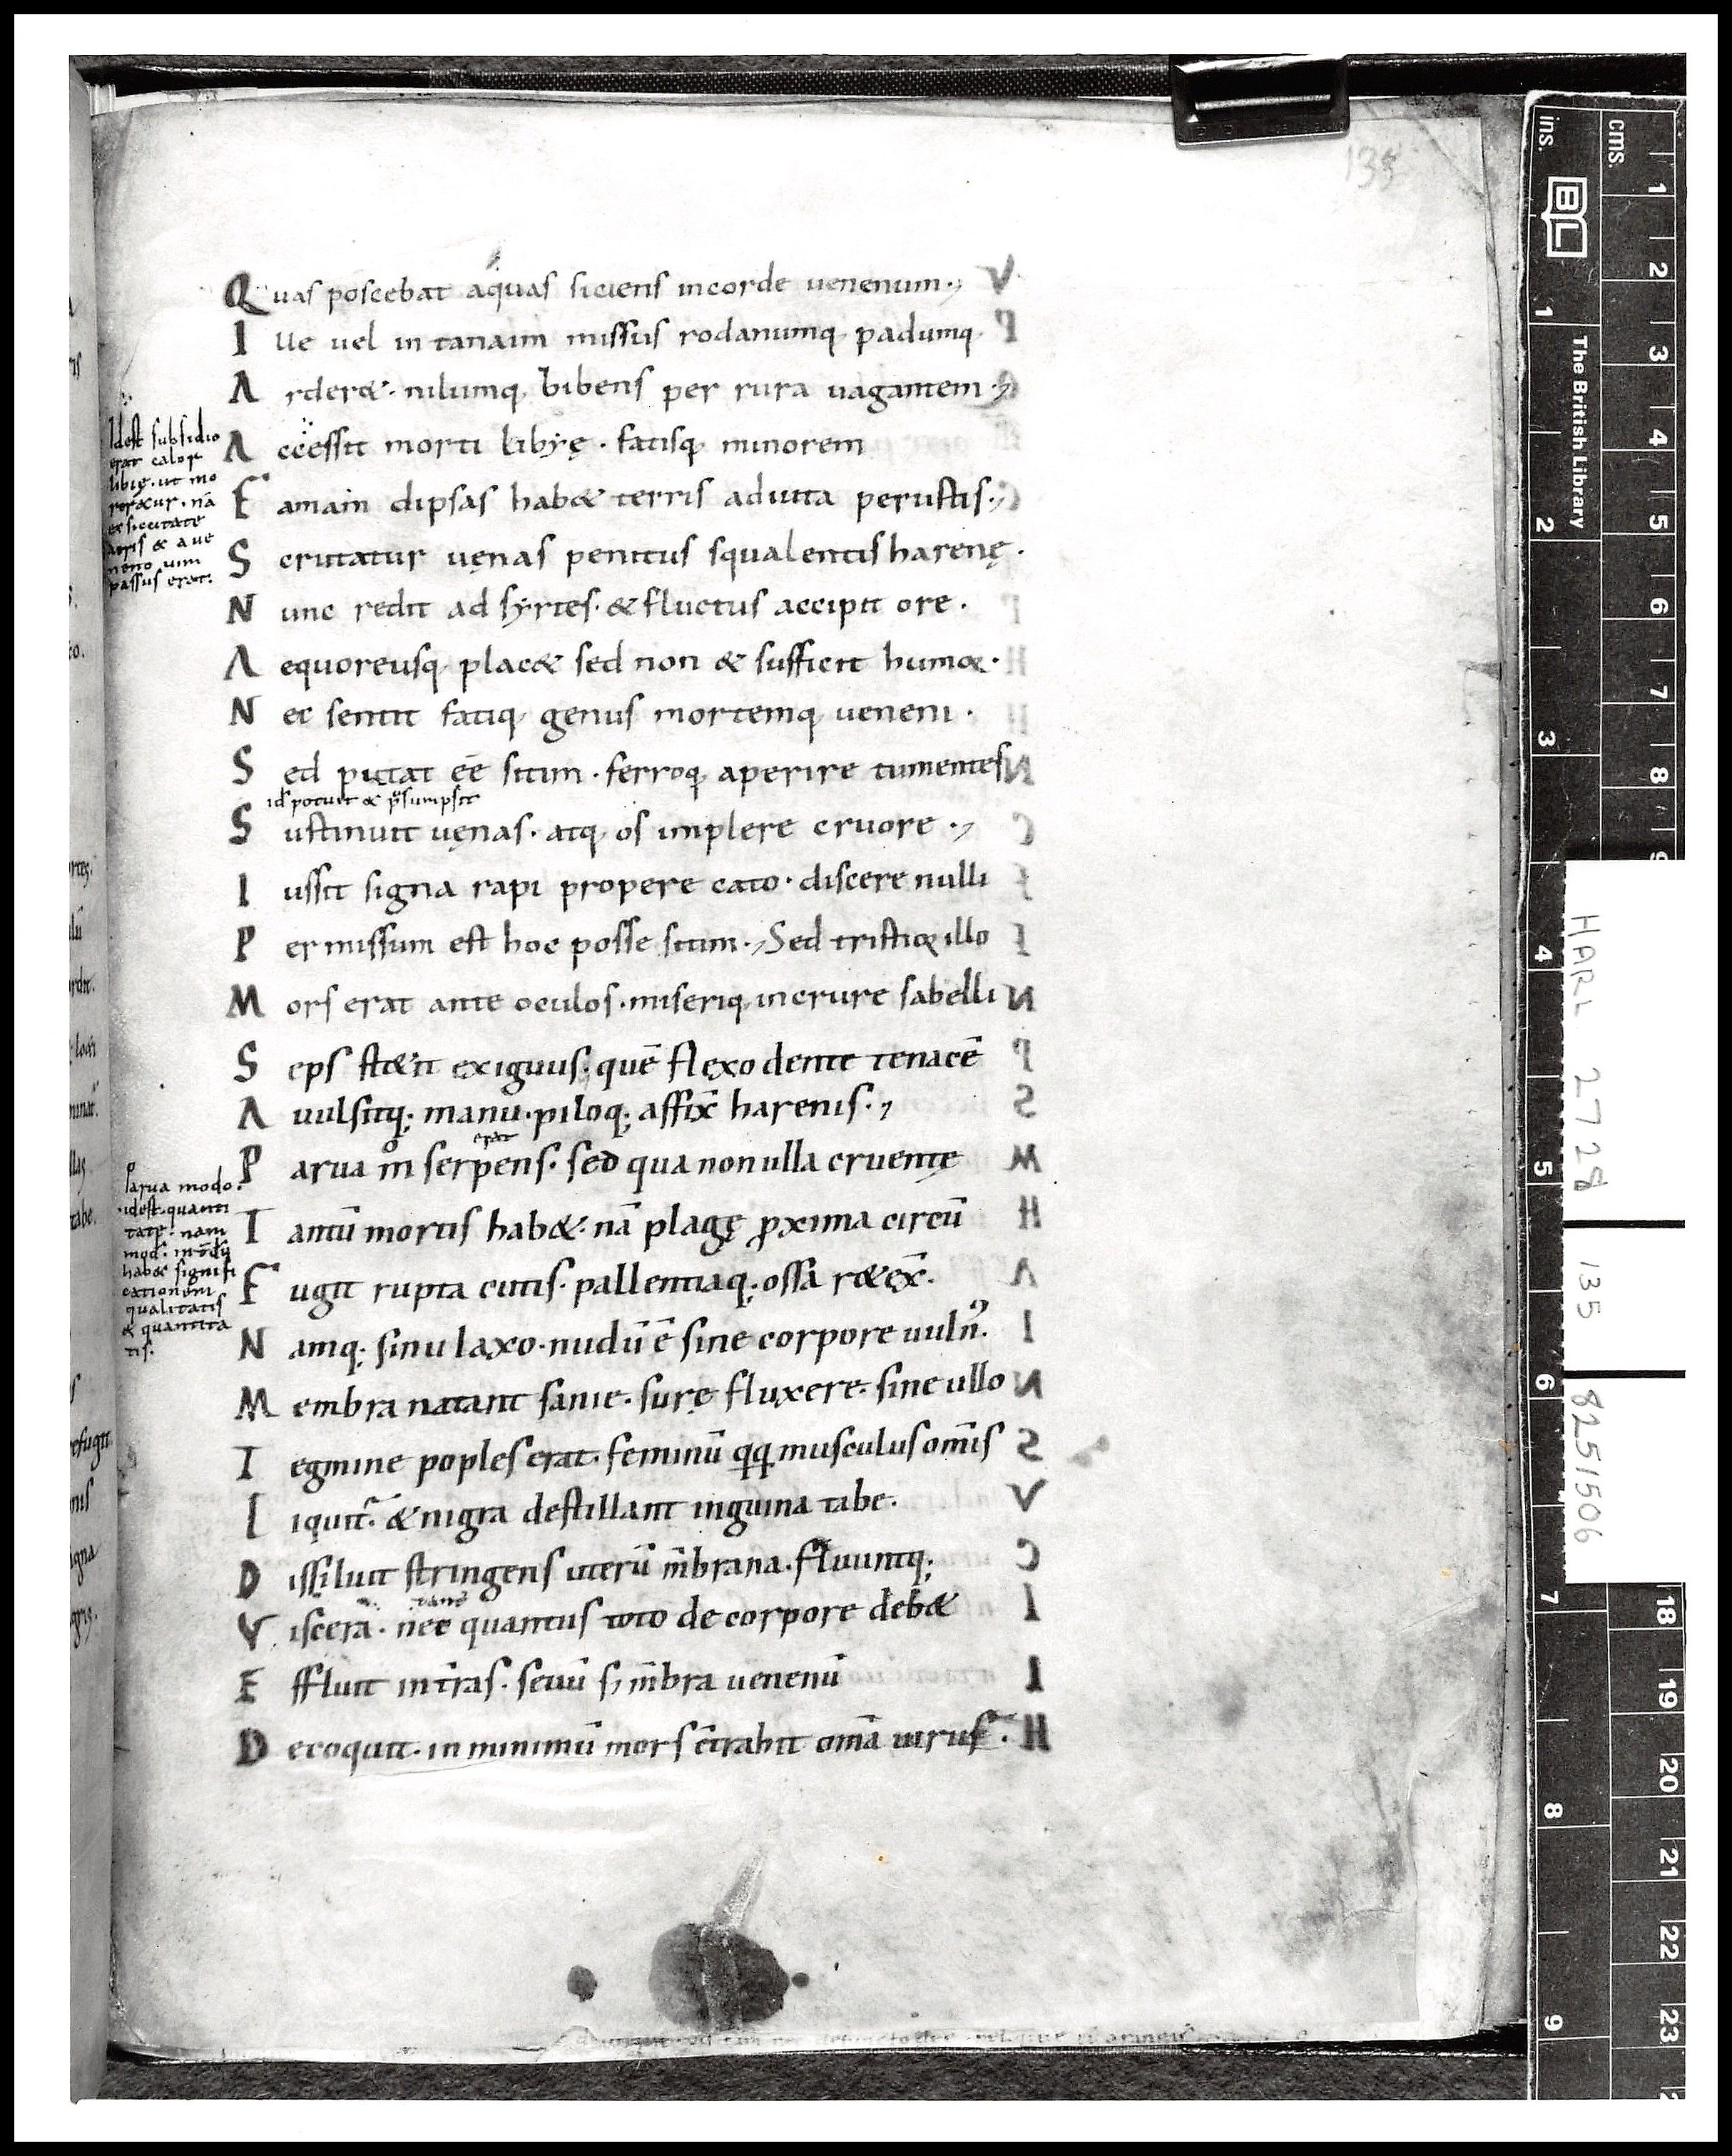 135
Quas poscebat aquas siciens incorde uenenum.,
Ille uel in tanaim missus rodanumq, padumq,
Arder&. nilumq, bibens per rura uagantem .,
Accessit morti libyę . fatisq, minorem
Famam dipsas hab& terris adiuta perustis.,
Scrutatur uęnas penitus squalentis harenę .
Nunc redit ad syrtes. & fluctus accipit ore .
Aequoreusq, plac& sed non & sufficit humor.
Nec sentit fatiq, genus mortemq, ueneni .
Sed putat eē sitim . ferroq, aperire tumentes
id potuit & p̄sumpsit
Sustinuit uęnas. atq, os implere cruore .,
Iussit signa rapi propere cato. discere nulli
Permissum est hoc posse sitim ., Sed tristior illo
Mors erat ante oculos. miseriq, incrure sabelli
Seps st&it exiguus. quē flexo dente tenacē
Auulsitq; manu. piloq; affix̄ harenis .,
erat
Parua m̊ serpens. sed qua non ulla cruentę
Tantū mortis hab&. nā plagę ꝓxima circū
Fugit rupta cutis. pallentiaq; ossa r&ex̄.
Namq; sinu laxo. nudū ē sine corpore uuln̄.
Membra natant sanie. surę fluxere. sine ullo
Tegmine poples erat. feminū qq musculus om̄is
Liquit. & nigra destillant inguina tabe.
Dissiluit stringens uterū m̄brana. fluuntq;
Viscera. nec quantus toto de corpore deb&
Effluit in t̄ras. seuū s; m̄bra uenenū
Decoquit. in minimū mors c̄trahit om̄a uirus .
Idest subsidio
erat calor
libię. ut mo
rer&ur. nā
ex siccitate
aeris & a ue
neno uim
passus erat.
Parua modo.
idest. quanti
tate. nam
mod. int̄dū
hab& signifi
cationem
qualitatis
& quantita
tis.
cms.
ins.
BL
The British Library
HARL 2728
135
8251506
1 2 3 4 5 6 7 8 9
18 19 20 21 22 23
1 2 3 4 5 6 7 8 9